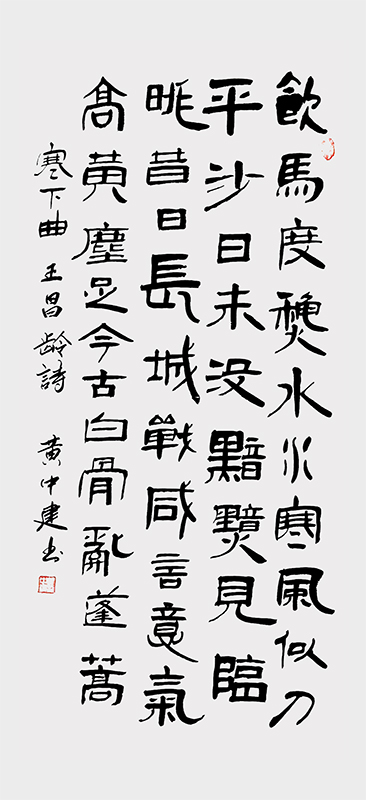 飲馬度秋水水寒風似刀
平沙日未没黯黯見臨
眺昔日長城戰咸言意氣
髙黃塵足今古白骨亂蓬蒿
寒下曲 王昌齡詩 黄中建书